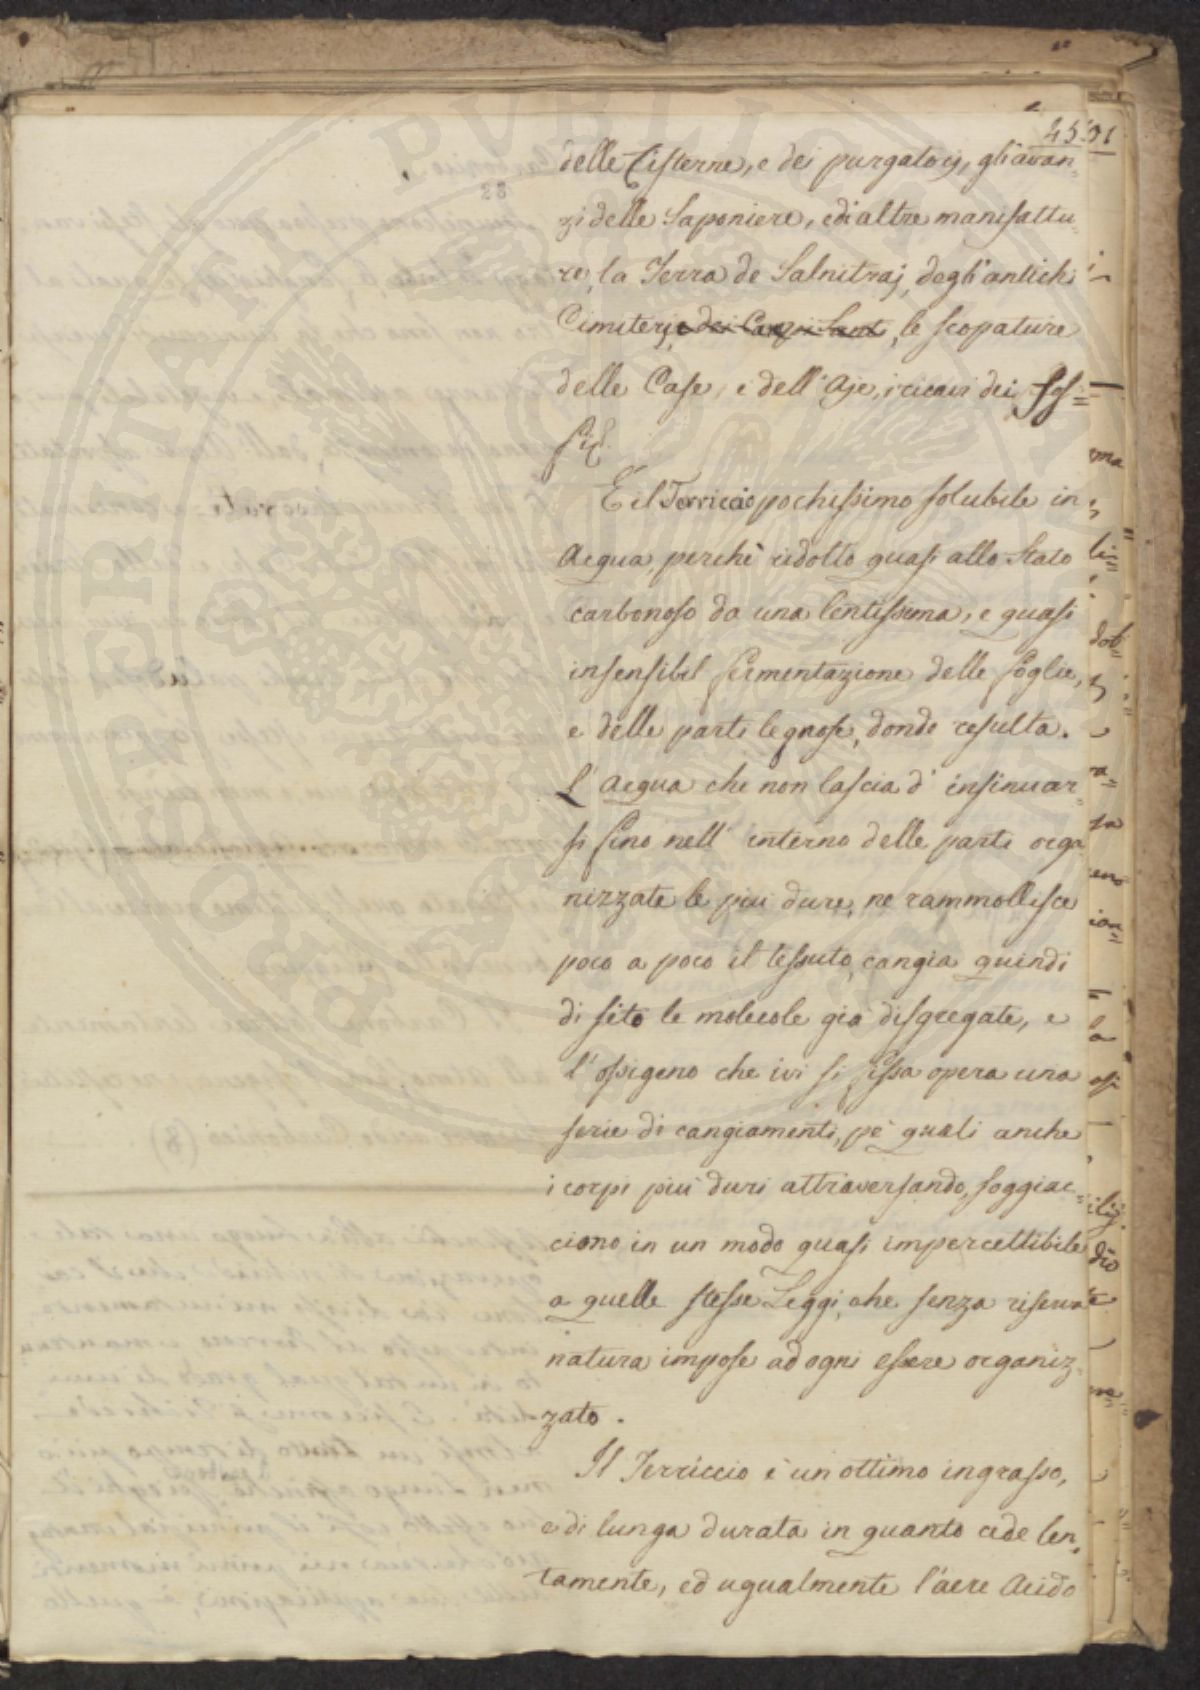 45
31
delle Cisterne, e dei purgatoij, gli avan=
zi delle Saponiere, e di altre manifattu=
re, la Terra de Salnitraj, degl'antichi
Cimiterj, e dei Campi Santi, le scopature
delle Case, e dell'Aje, i ricavi dei fos=
si.
E il Terriccio pochissimo solubile in
Acqua perchè ridotto quasi allo Stato
carbonoso da una lentissima, e quasi
insensibil fermentazione delle foglie,
e delle parti legnose, donde resulta.
L'Acqua che non lascia d'insinuar=
si fino nell'interno delle parti orga
nizzate le piu dure, ne rammollisce
poco a poco il tessuto, cangia quindi
di sito le molecole già disgregate, e
l'ossigeno che ivi si fissa opera una
serie di cangiamenti, pe' quali anche
i corpi più duri attraversando, soggiac=
ciono in un modo quasi impercettibile
a quelle stesse Leggi, che senza riserva
natura impose ad ogni essere organiz=
zato.
Il Terriccio è un ottimo ingrasso,
e di lunga durata in quanto cede len=
tamente, ed ugualmente l'aere Acido